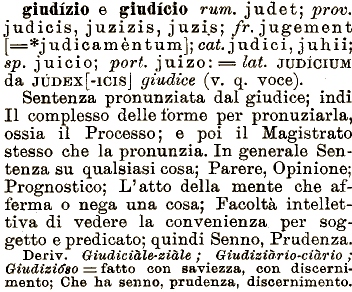 giudízio e giudício rum. judet; prov.
judicis, juzizis, juzis; fr. jugement
[=*judicamèntum]; cat. judici, juhii;
sp. juicio; port. juizo: = lat. JUDÍCIUM
da JÚDEX[-ICIS] giudice (v. q. voce).
Sentenza pronunziata dal giudice; indi
Il complesso delle forme per pronuziarla,
ossia il Processo; e poi il Magistrato
stesso che la pronunzia. In generale Sen-
tenza su qualsiasi cosa; Parere, Opinione;
Prognostico; L'atto della mente che af-
ferma o nega una cosa; Facoltà intellet-
tiva di vedere la convenienza per sog-
getto e predicato; quindi Senno, Prudenza.
Deriv. Giudiciàle-ziàle; Giudiziàrio-ciàrio;
Giudizióso = fatto con saviezza, con discerni-
mento; Che ha senno, prudenza, discernimento.